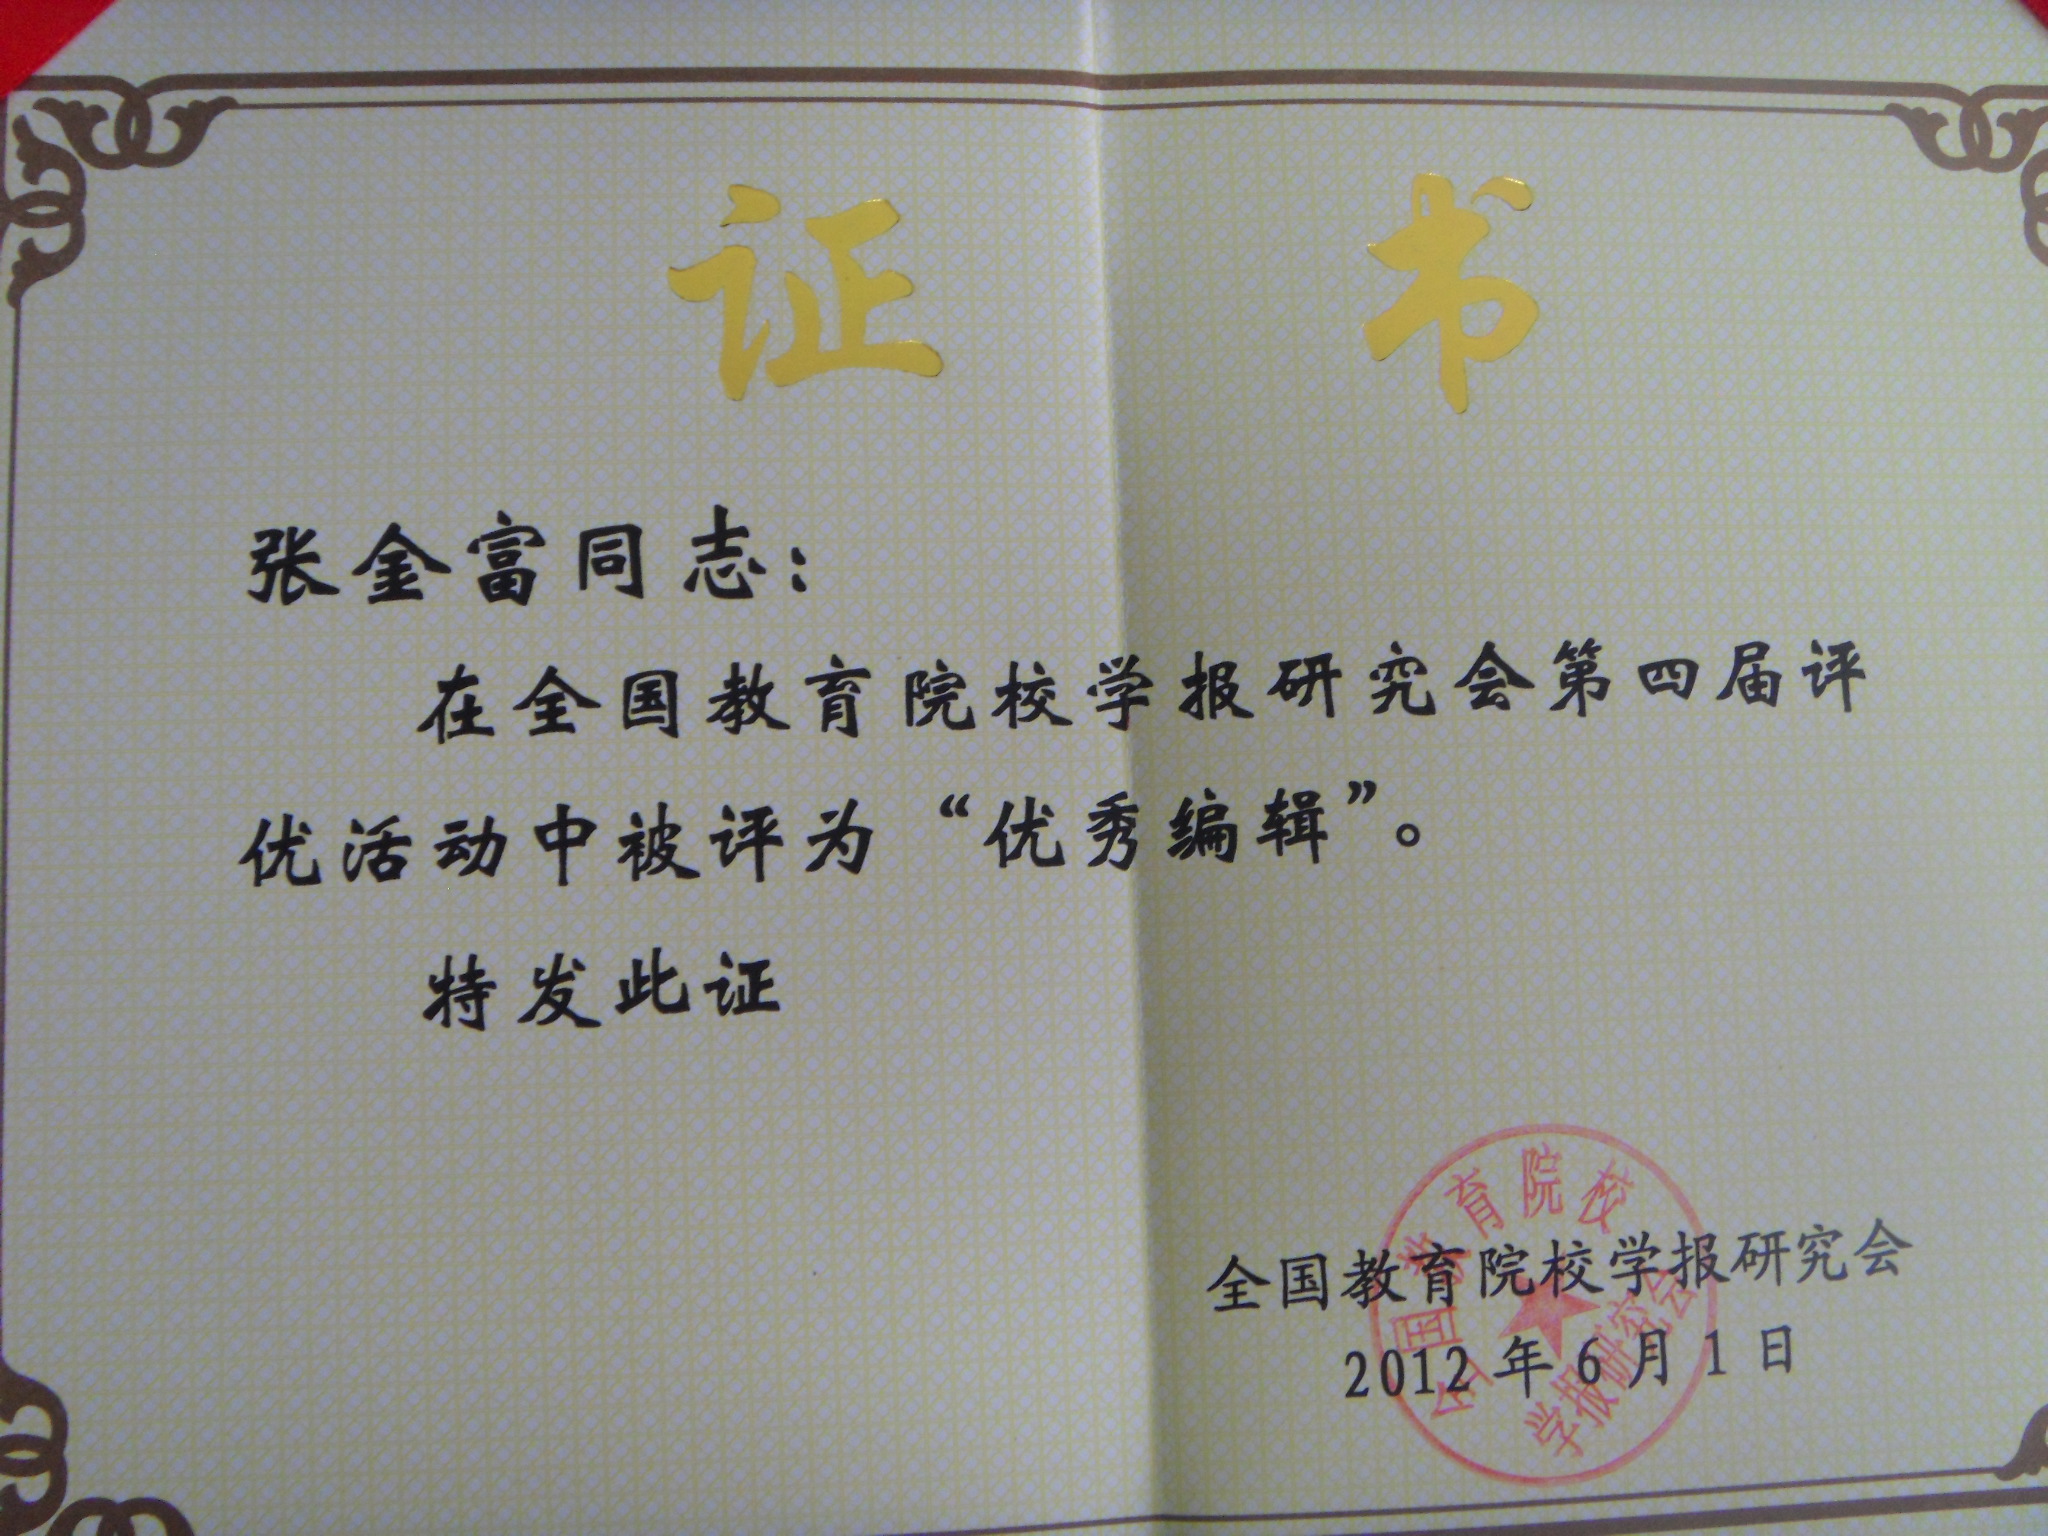 证书
张金富同志：
在全国教育院校学报研究会第四届评
优活动中被评为“优秀编辑”。
特发此证
全国教育院校学报研究会
2012年6月1日
全国教育院校
学报研究会